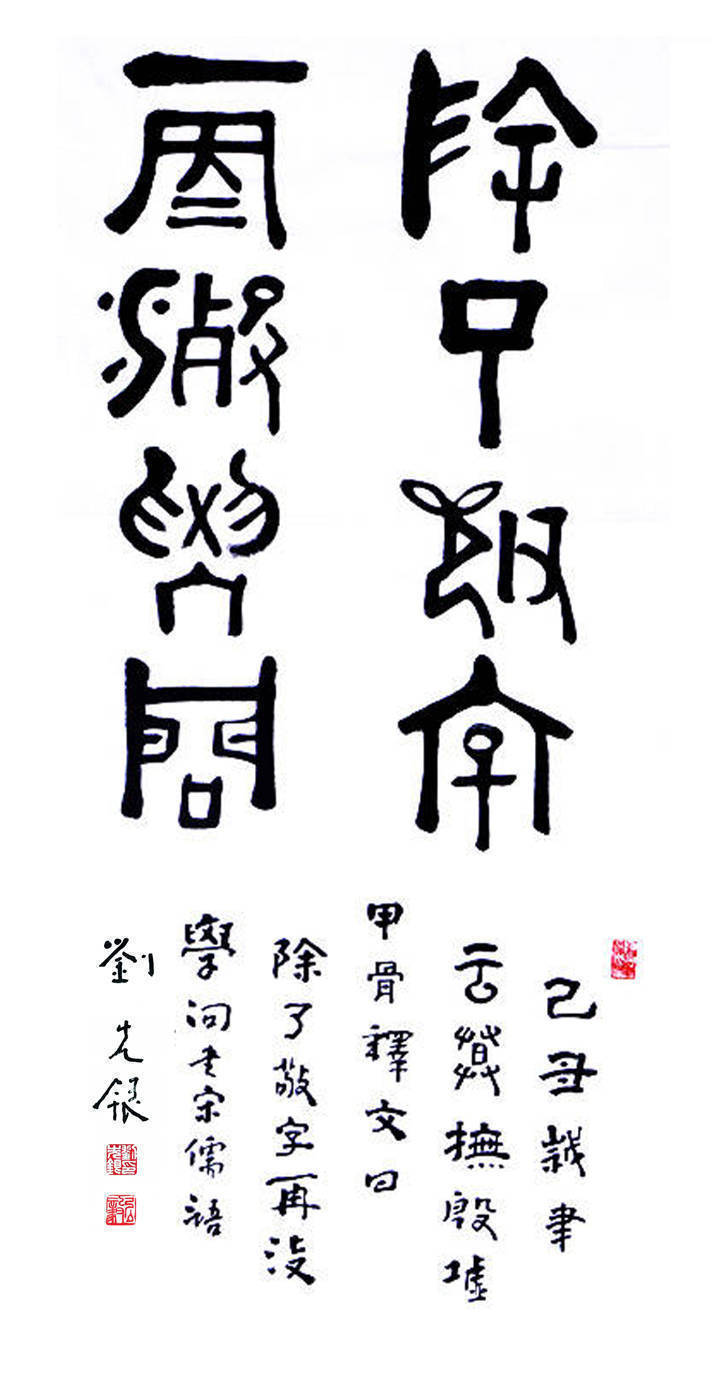 除了敬字
再没學問
己丑聿
撫殷墟
甲骨釋文曰
除了敬字再没
學问書宋儒語
劉先銀